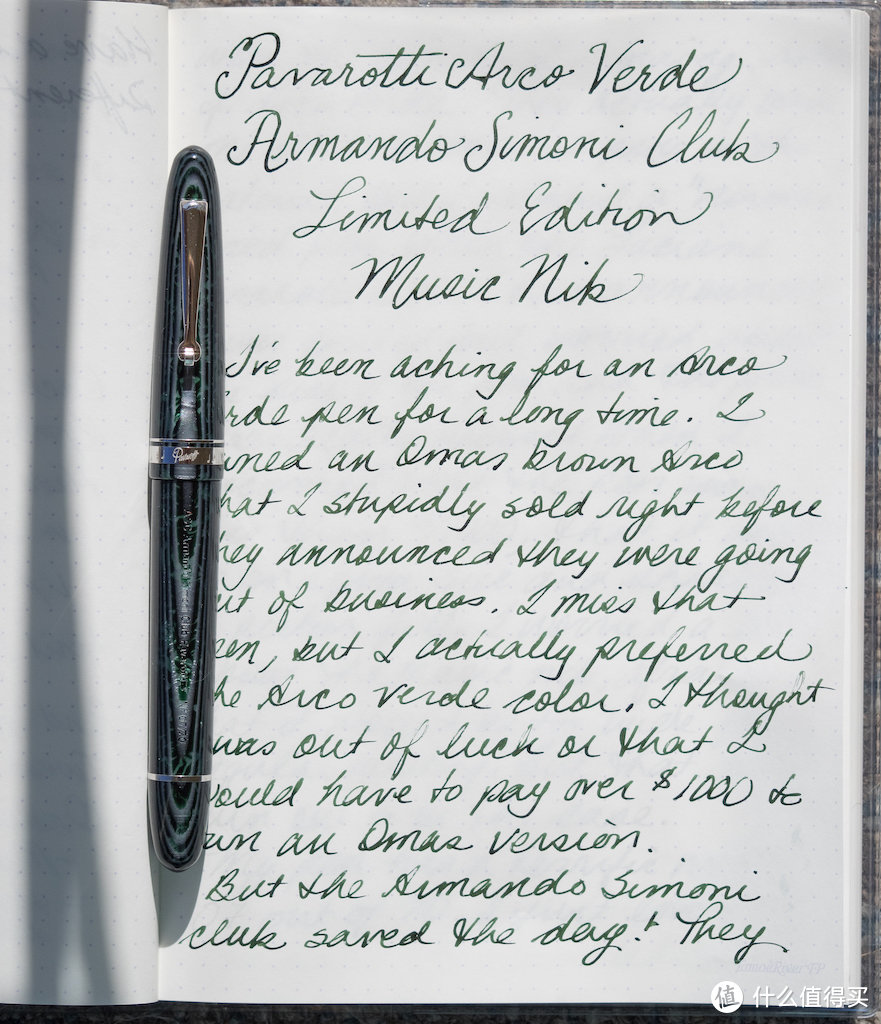 Pavarotti Arco Verde
Armando Simoni Club
Limited Edition
Music Nib
I've been aching for an Arco
rde pen for a long time. I
wned an Omas brown Arco
hat I stupidly sold right before
hey announced they were going
ut of business. I miss that
pen, but I actually preferred
he Arco Verde color. I thought
was out of luck or that I
would have to pay over $1000 to
wn an Omas version.
But the Armando Simoni
club saved the day! They
Pavarotti
值 什么值得买